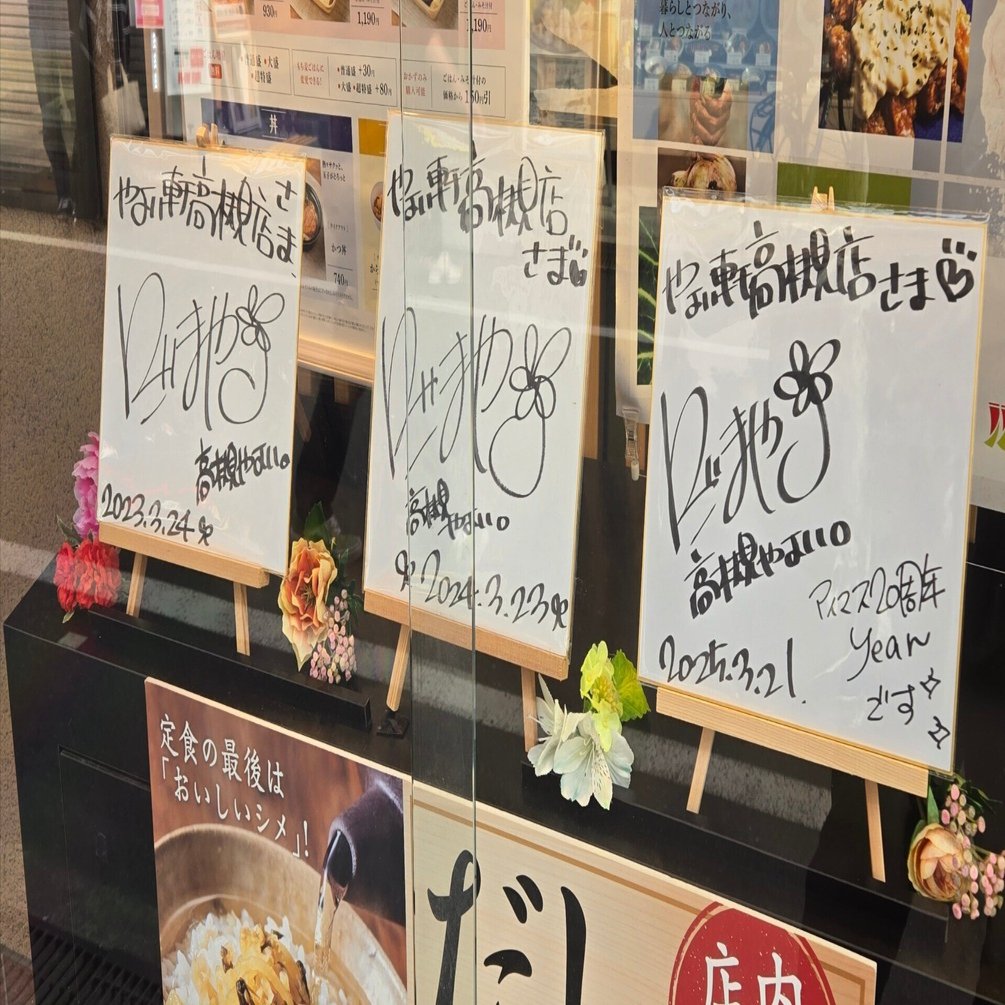 930円
1,190円
1,190円
もち麦ごはんに
変更できる!
•普通盛 +30円
•大盛 •超特盛 +80円
おかずのみ
購入可能
ごはん・みそ汁付の
価格から150円引
暮らしとつながり、
人とつながる
丼
かつ丼
740円
やよい軒高槻店さま
高槻やよい。
2023.3.24
やよい軒高槻店
さま
高槻
やよい。
2024.3.23
やよい軒高槻店さま
高槻やよい。
アイマス20周年
year
です
2025.3.21.
定食の最後は
「おいしいシメ」!
だし
店内